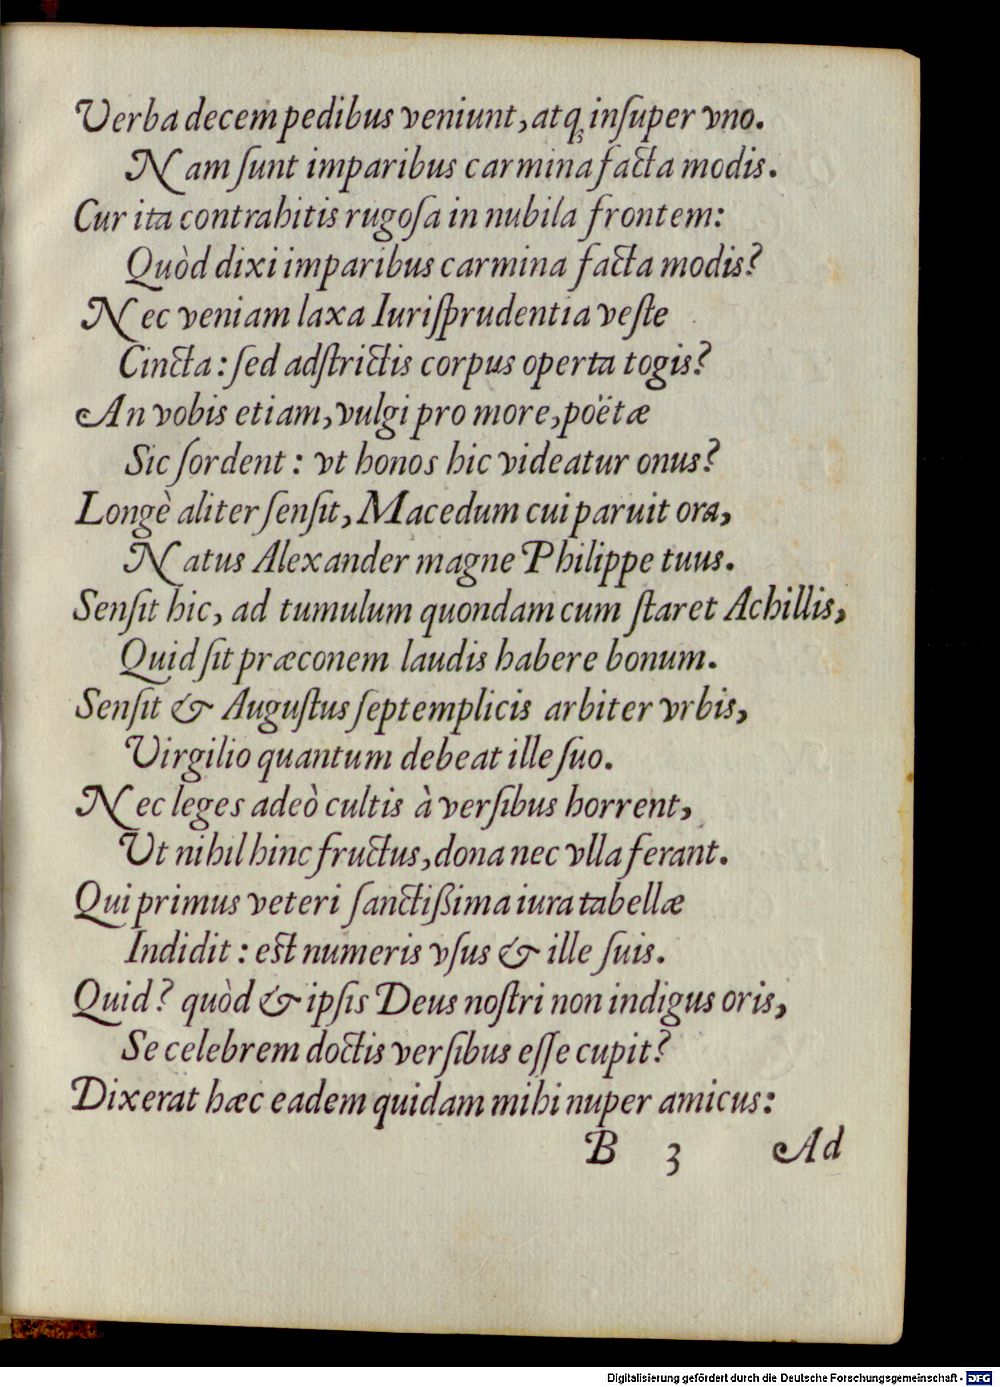 Verba decem pedibus veniunt, atq; inſuper vno.
Nam ſunt imparibus carmina facta modis.
Cur ita contrahitis rugoſa in nubila frontem:
Quòd dixi imparibus carmina facta modis?
Nec veniam laxa Iuriſprudentia veſte
Cincta: ſed adſtrictis corpus operta togis?
An vobis etiam, vulgi pro more, poëtæ
Sic ſordent: vt honos hic videatur onus?
Longè aliter ſenſit, Macedum cui paruit ora,
Natus Alexander magne Philippe tuus.
Senſit hic, ad tumulum quondam cum ſtaret Achillis,
Quid ſit præconem laudis habere bonum.
Senſit & Auguſtus ſeptemplicis arbiter vrbis,
Virgilio quantum debeat ille ſuo.
Nec leges adeò cultis à verſibus horrent,
Vt nihil hinc fructus, dona nec vlla ferant.
Qui primus veteri ſanctißima iura tabellæ
Indidit: est numeris vſus & ille ſuis.
Quid? quòd & ipſis Deus noſtri non indigus oris,
Se celebrem doctis verſibus eſſe cupit?
Dixerat hæc eadem quidam mihi nuper amicus:
B 3 Ad
Digitalisierung gefördert durch die Deutsche Forschungsgemeinschaft - DFG